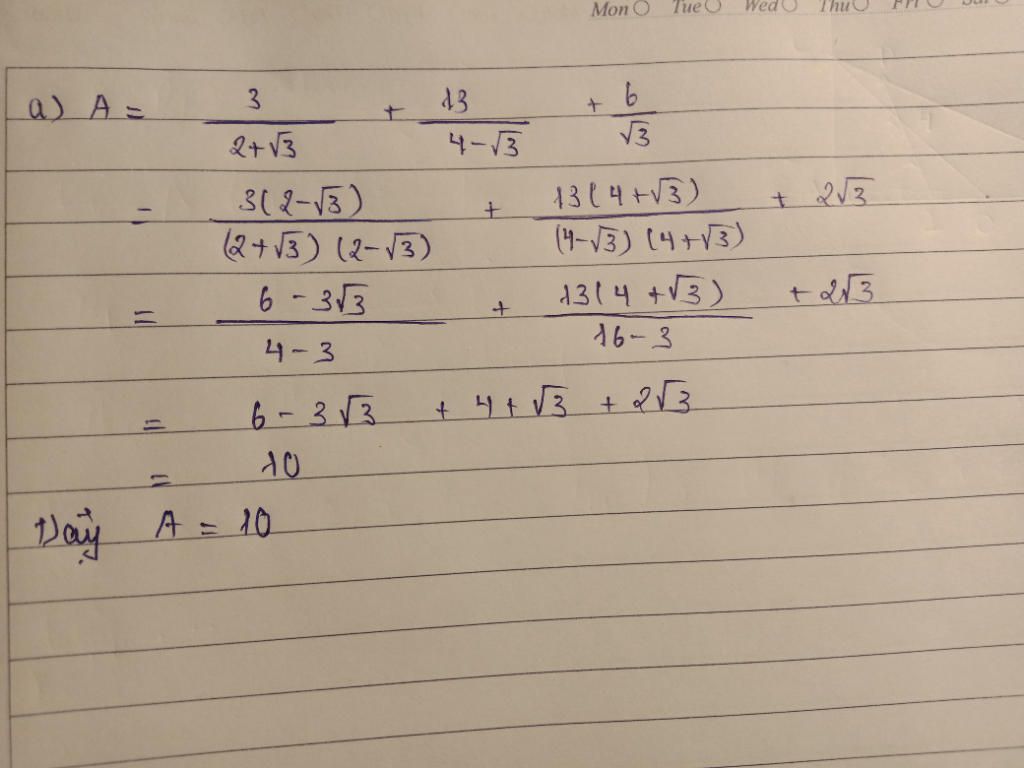 Mon Tue Wed Thu Fri Sat
a) A = 3/(2+√3) + 13/(4-√3) + 6/√3
= 3(2-√3)/((2+√3)(2-√3)) + 13(4+√3)/((4-√3)(4+√3)) + 2√3
= (6-3√3)/(4-3) + 13(4+√3)/(16-3) + 2√3
= 6-3√3 + 4+√3 + 2√3
= 10
Vậy A = 10